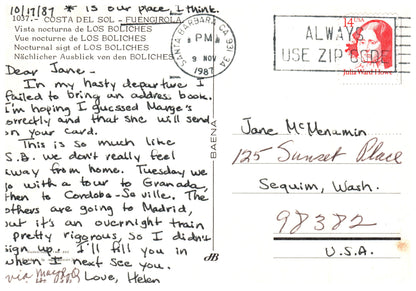 10/17/87 * is our place, I think.
1037.- COSTA DEL SOL - FUENGIROLA
Vista nocturna de LOS BOLICHES
Vue nocturne de LOS BOLICHES
Nocturnal sigt of LOS BOLICHES
Nächlicher Ausblick von den BOLICHES
Dear Jane-
In my hasty departure I
failed to bring an address book.
I'm hoping I guessed Marge's
correctly and that she will send
on your card.
This is so much like
S.B. we don't really feel
away from home. Tuesday we
go with a tour to Granada,
then to Cordoba-Seville. The
others are going to Madrid,
but it's an overnight train
pretty rigorous, so I didn't
sign up. I'll fill you in
when I next see you.
Love, Helen
via
BAENA
SANTA BARBARA CA 931
PM
9 NOV
1987
ALWAYS
USE ZIP CODE
14c USA
Julia Ward Howe
Jane McMenamin
125 Sunset Place
Sequim, Wash.
98382
U.S.A.